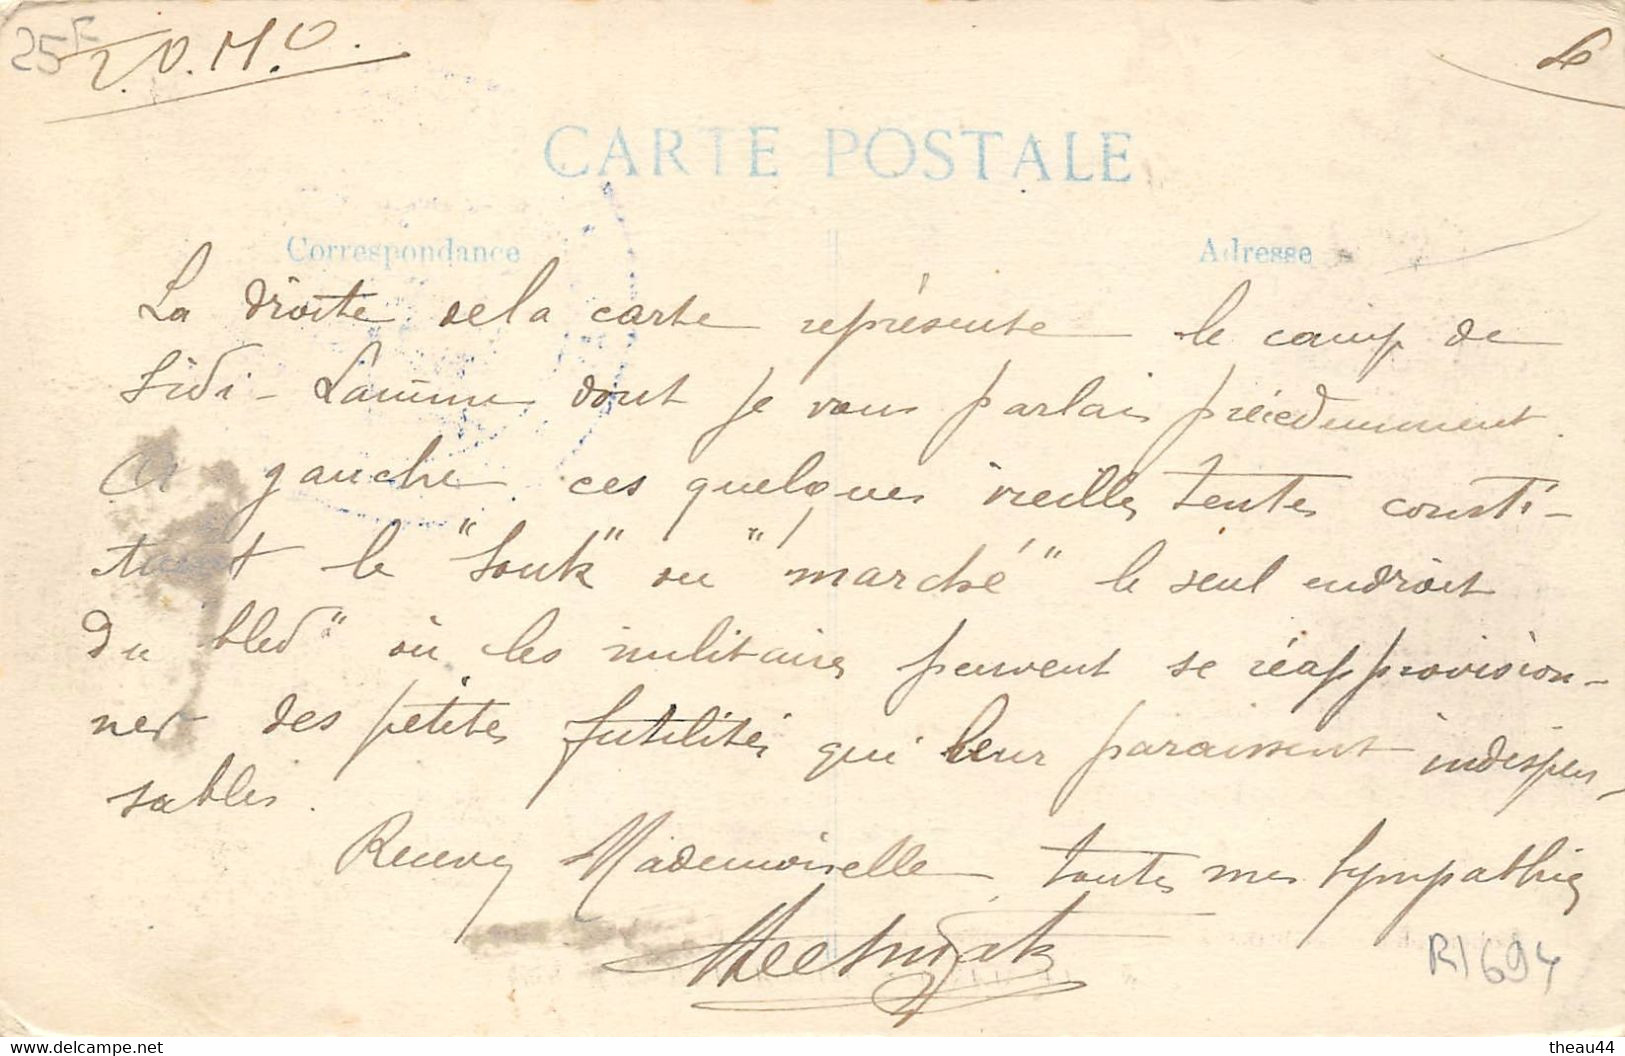 25F
O.M.O.
CARTE POSTALE
Correspondance Adresse
La droite de la carte représente le camp de
Sidi - Lamine dont je vous parlais précédemment.
A gauche ces quelques vieilles tentes consti-
tuent le "Souk" ou "marché" le seul endroit
du "bled" où les militaires peuvent se réapprovision-
ner des petites futilités qui leur paraissent indispen-
sables.
Recevez Mademoiselle toutes mes sympathies
R1694
www.delcampe.net theau44